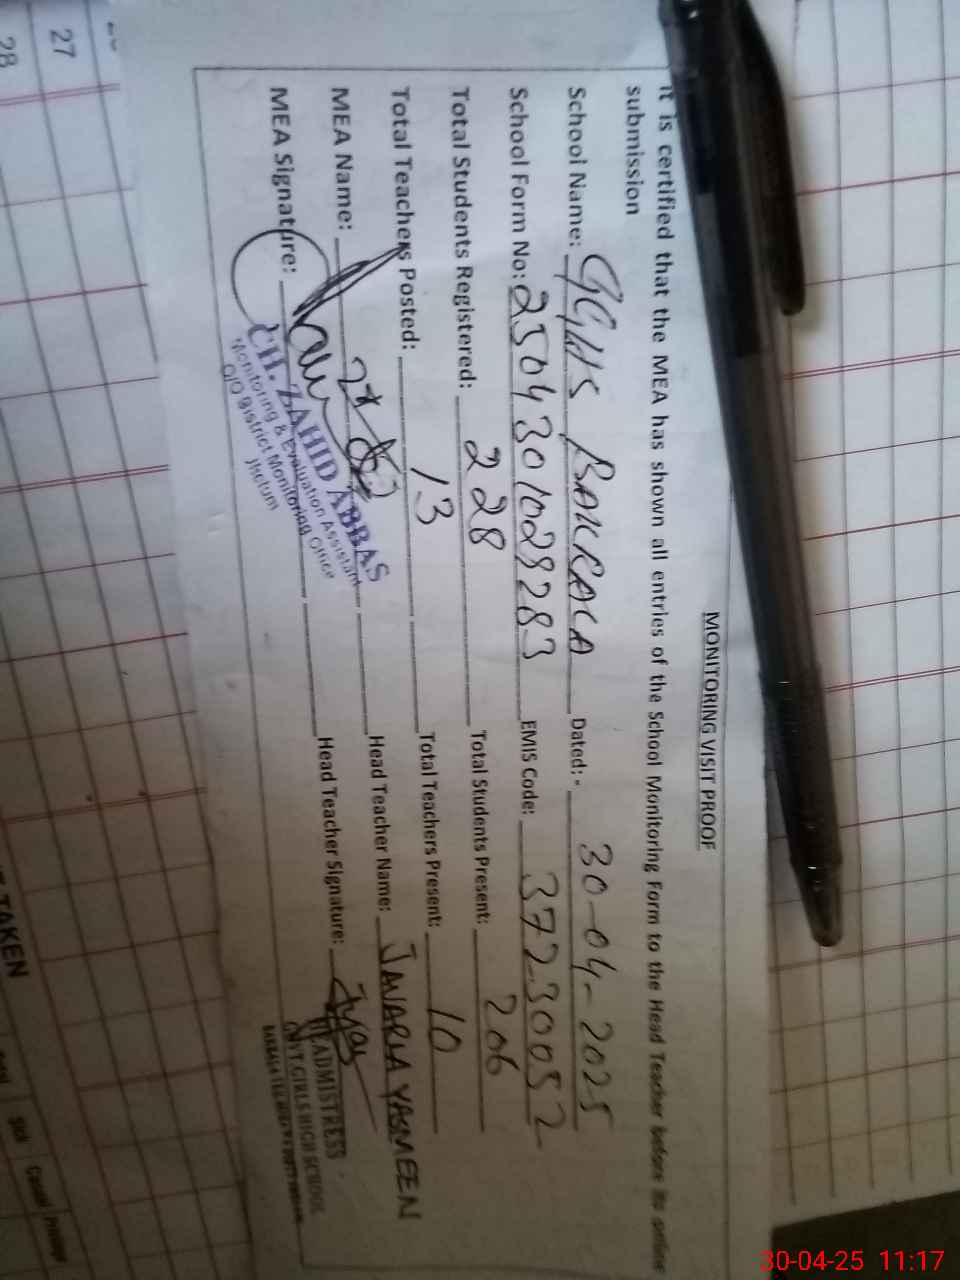 MONITORING VISIT PROOF
It is certified that the MEA has shown all entries of the School Monitoring Form to the Head Teacher before its online
submission
School Name: GGHS BAKRALA Dated:- 30-04-2025
School Form No: 2504301028283 EMIS Code: 37230052
Total Students Registered: 228 Total Students Present: 206
Total Teachers Posted: 13 Total Teachers Present: 10
MEA Name: Head Teacher Name: JAVARIA YASMEEN
MEA Signature: Head Teacher Signature:
CH. ZAHID ABBAS
Monitoring & Evaluation Assistant
O/O District Monitoring Office
Jhelum
HEADMISTRESS
GOVT GIRLS HIGH SCHOOL
27
28
TAKEN
Sick
Casual
30-04-25 11:17